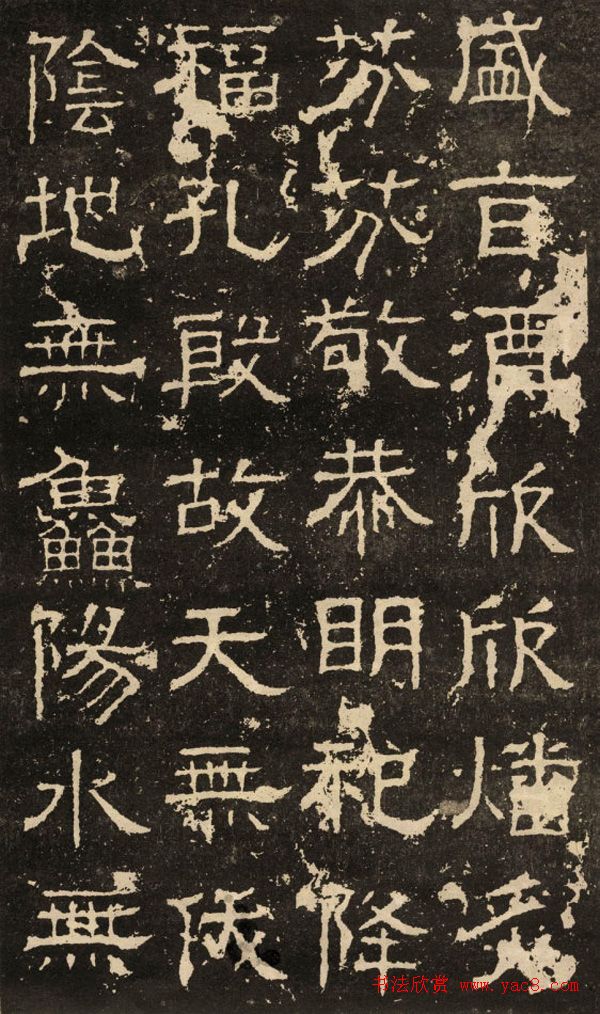 盛旨酒欣欣燔炙
芬芬敬恭明祀降
福孔殷故天無伏
陰地無鱻陽水無
书法欣赏 www.yac8.com